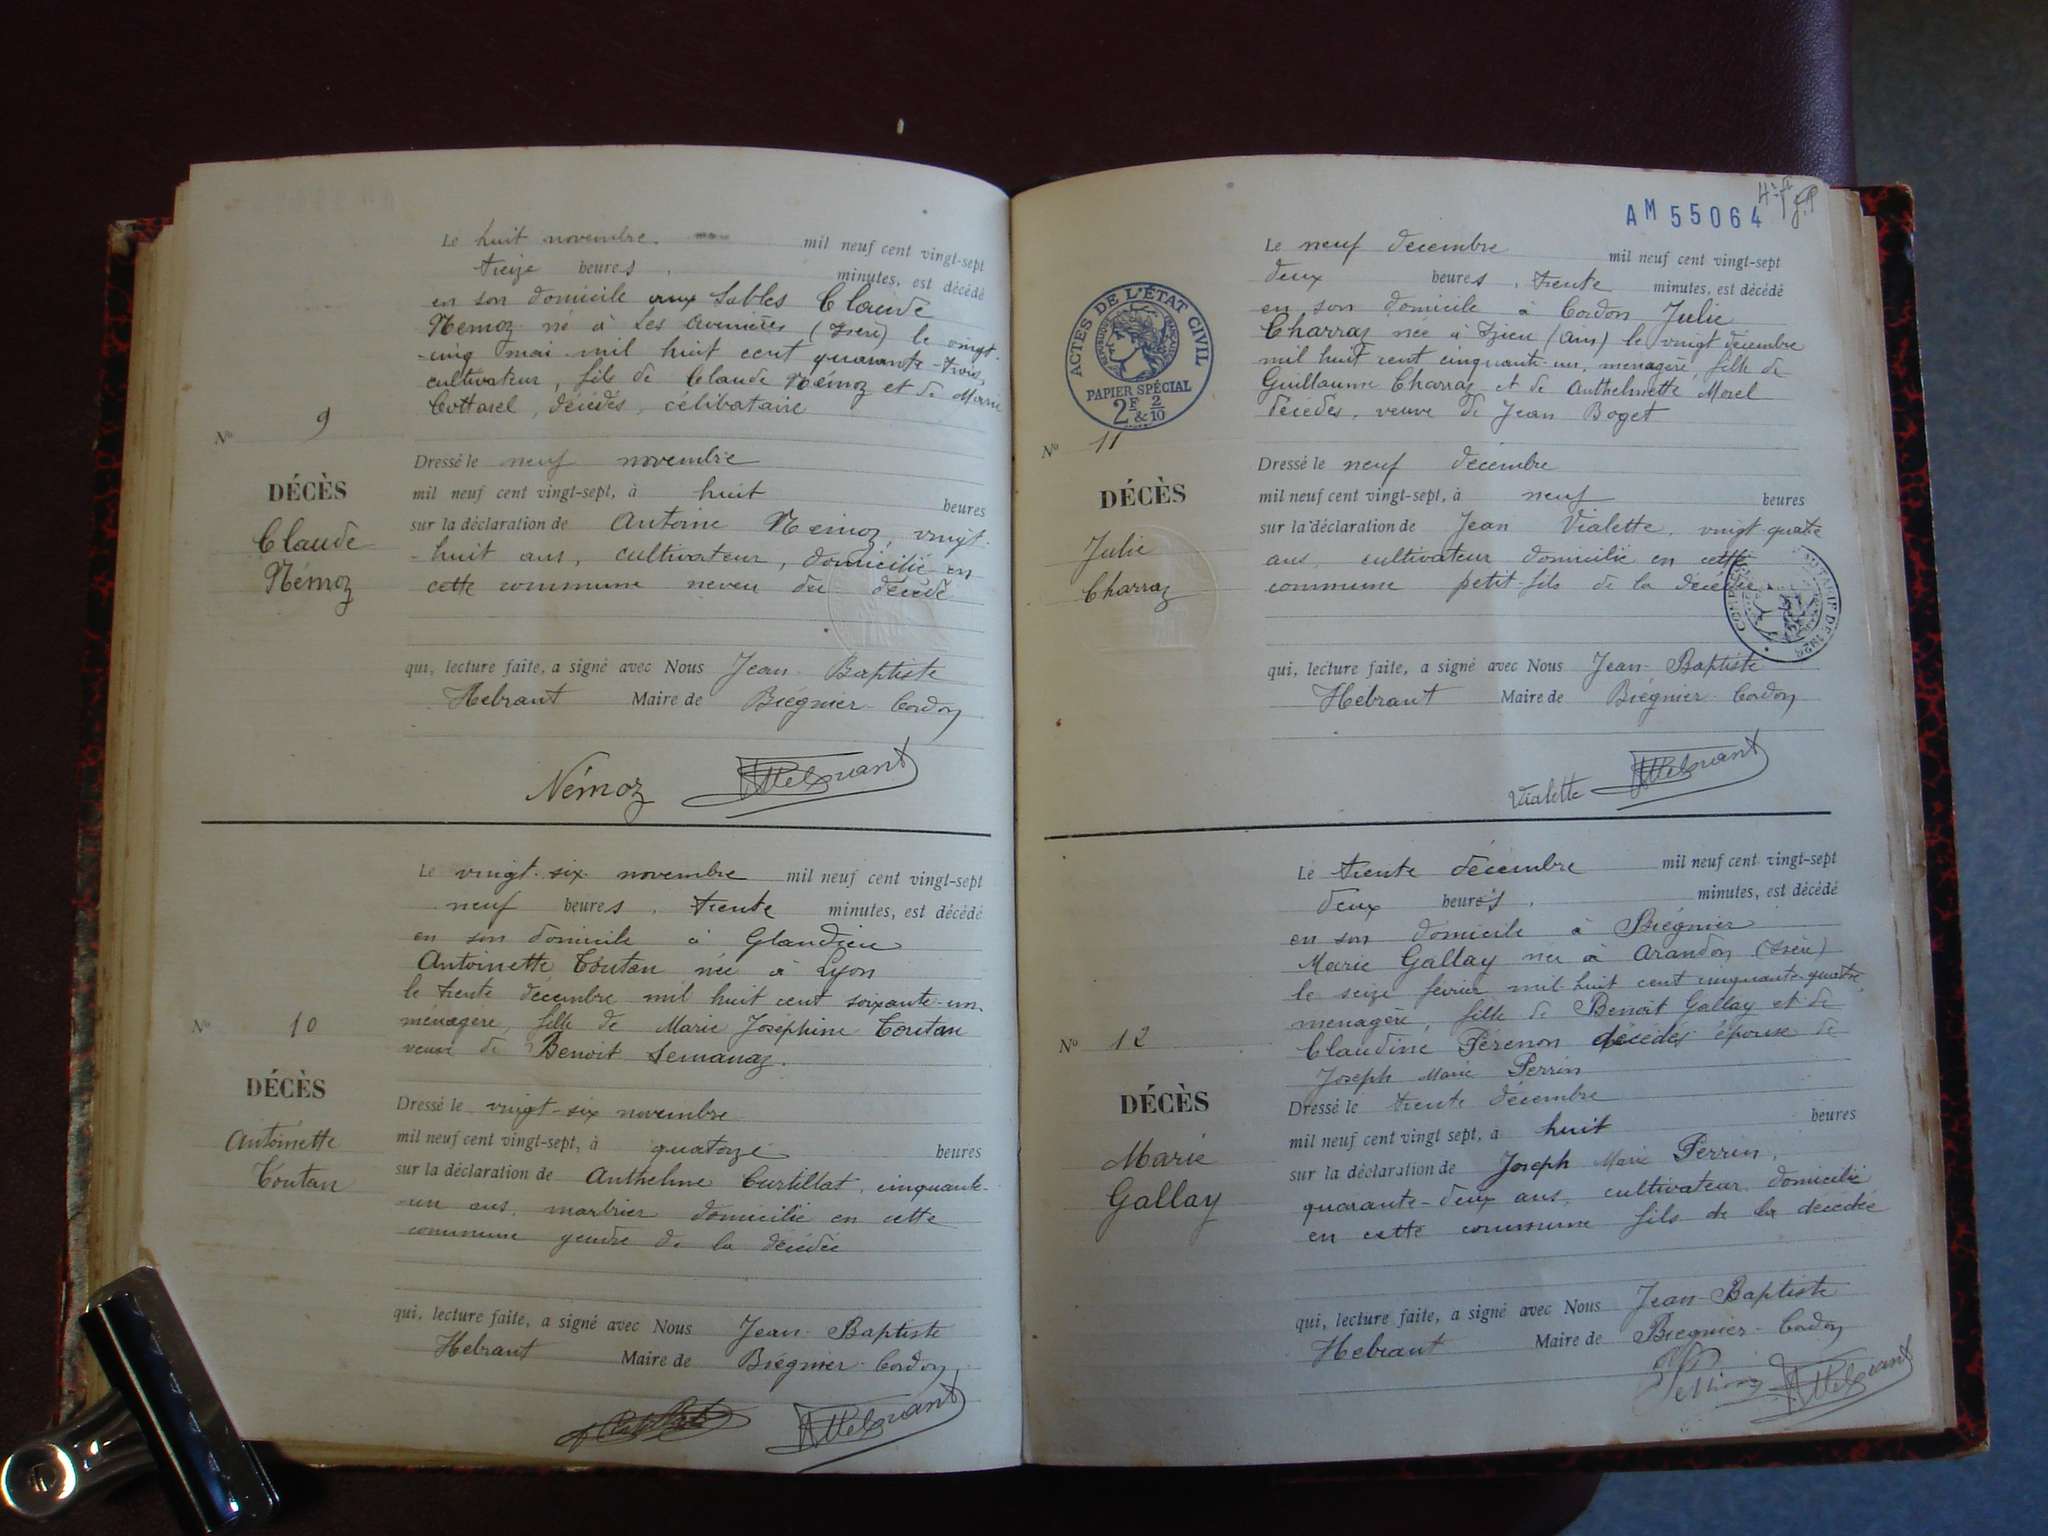 Le huit novembre mil neuf cent vingt-sept
treize heures, minutes, est décédé
en son domicile aux Sables Claude
Némoz né à Les Avenières (Isère) le vingt-
-cinq mai mil huit cent quarante-trois,
cultivateur, fils de Claude Némoz et de Marie
Cottarel, décédés, célibataire
No 9
DÉCÈS
Claude
Némoz
Dressé le neuf novembre
mil neuf cent vingt-sept, à huit heures
sur la déclaration de Antoine Némoz, vingt-
-huit ans, cultivateur, domicilié en
cette commune neveu du décédé
qui, lecture faite, a signé avec Nous Jean-Baptiste
Hebrant Maire de Brégnier-Cordon
Némoz Hebrant
Le vingt-six novembre mil neuf cent vingt-sept
neuf heures, trente minutes, est décédé
en son domicile à Glandieu
Antoinette Toutan née à Lyon
le trente décembre mil huit cent soixante-un,
ménagère, fille de Marie Joséphine Toutan
veuve de Benoit Semanaz.
No 10
DÉCÈS
Antoinette
Toutan
Dressé le vingt-six novembre
mil neuf cent vingt-sept, à quatorze heures
sur la déclaration de Anthelme Curtillat, cinquante-
-un ans, marbrier domicilié en cette
commune gendre de la décédée
qui, lecture faite, a signé avec Nous Jean-Baptiste
Hebrant Maire de Brégnier-Cordon
Hebrant
AM 55064
Le neuf décembre mil neuf cent vingt-sept
deux heures, trente minutes, est décédé
en son domicile à Cordon Julie
Charraz née à Izieu (Ain) le vingt décembre
mil huit cent cinquante-un, ménagère, fille de
Guillaume Charraz et de Anthelmette Morel
décédés, veuve de Jean Boget
ACTES DE L'ÉTAT CIVIL
RÉPUBLIQUE FRANÇAISE
PAPIER SPÉCIAL
2F & 2/10
No 11
DÉCÈS
Julie
Charraz
Dressé le neuf décembre
mil neuf cent vingt-sept, à neuf heures
sur la déclaration de Jean Vialette, vingt-quatre
ans, cultivateur domicilié en cette
commune petit-fils de la décédée
qui, lecture faite, a signé avec Nous Jean-Baptiste
Hebrant Maire de Brégnier-Cordon
Vialette Hebrant
Le trente décembre mil neuf cent vingt-sept
deux heures, minutes, est décédé
en son domicile à Brégnier
Marie Gallay née à Arandon (Isère)
le seize février mil huit cent cinquante-quatre,
ménagère, fille de Benoit Gallay et de
Claudine Pérenon décédés épouse de
Joseph Marie Perrin
No 12
DÉCÈS
Marie
Gallay
Dressé le trente décembre
mil neuf cent vingt sept, à huit heures
sur la déclaration de Joseph Marie Perrin,
quarante-deux ans, cultivateur domicilié
en cette commune fils de la décédée
qui, lecture faite, a signé avec Nous Jean-Baptiste
Hebrant Maire de Brégnier-Cordon
Perrin Hebrant